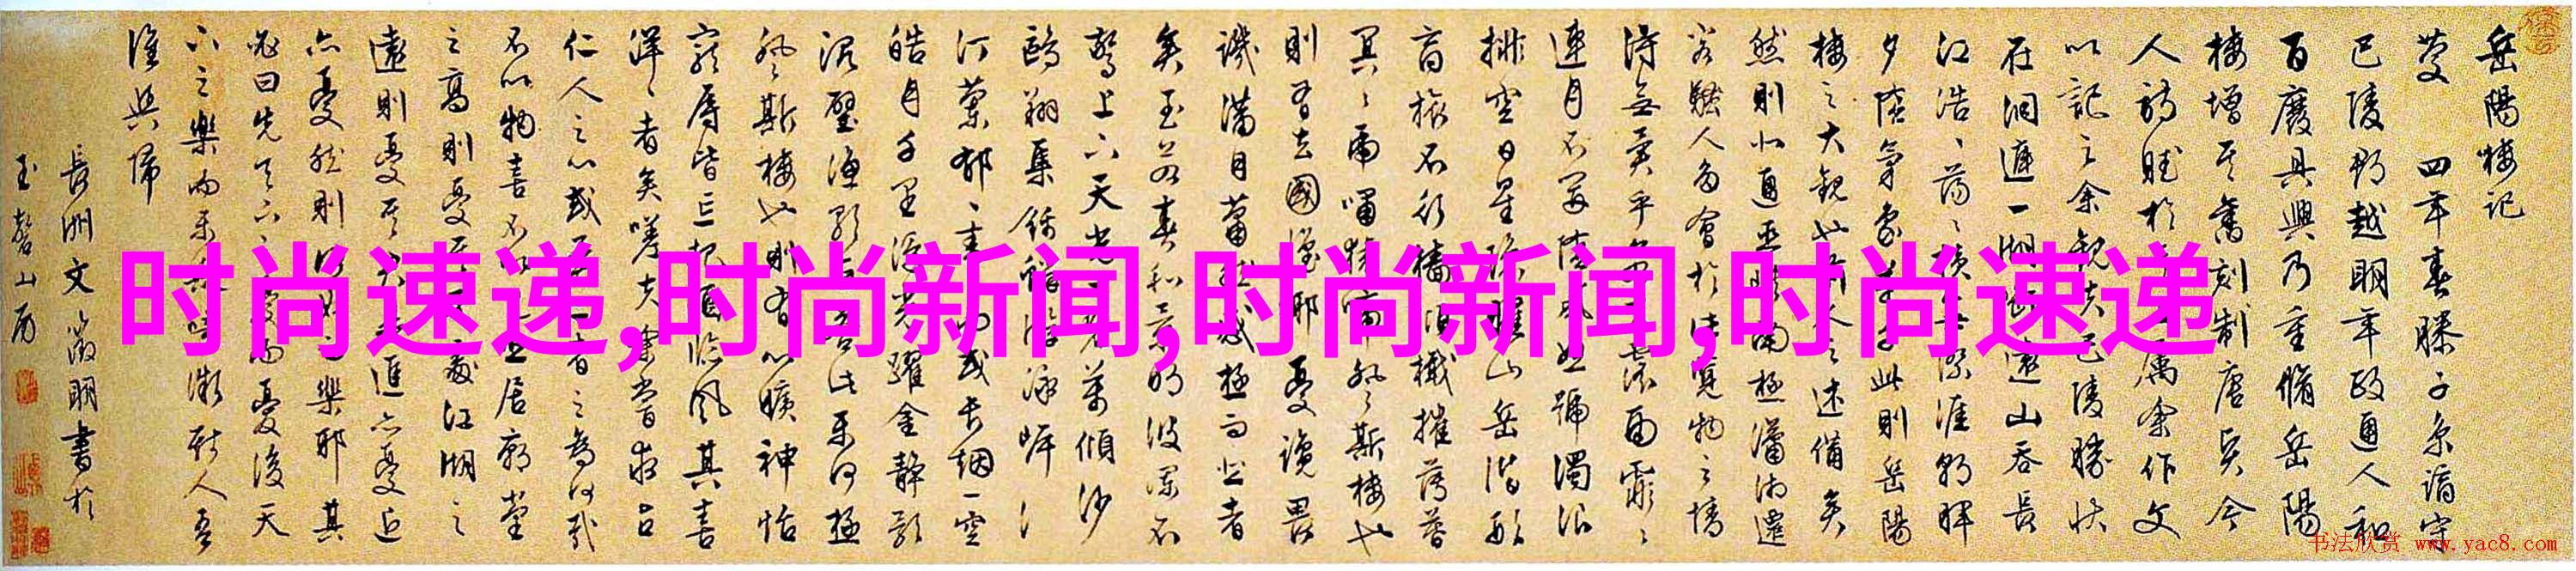 岳陽樓記
慶 四年春滕子京謫守
巴陵郡越明年政通人和
百廢具興乃重脩岳陽
樓增其舊刻制唐賢今
人詩賦於 屬余作文
以記之余觀夫巴陵勝狀
在洞庭一湖 遠山吞長
江浩〻蕩〻橫無際涯朝暉
夕陰氣象 此則岳陽
樓之大觀也前人之述備矣
然則北通巫 南極瀟湘遷
客騷人多會於此覽物之情
得無異乎 雨霏〻
連月不開陰風怒號濁浪
排空日星隱曜山岳潛形
商旅不行檣傾檝摧薄暮
冥〻虎嘯猿啼登斯樓也
則有去國懷鄉憂讒畏
譏滿目蕭然感極而悲者
矣至若春和景明波瀾不
驚上下天光一碧萬傾沙
鷗翔集錦鱗游泳岸
汀蘭郁〻青〻而或長烟一空
皓月千里浮光躍金靜影
沉璧漁歌互答此樂何極
登斯樓也則有心曠神怡
寵辱皆忘把酒臨風其喜
洋〻者矣嗟夫余嘗求古
仁人之心或異二者之為何哉
不以物喜不以己悲居廟堂
之高則憂其民處江湖之
遠則憂其君是進亦憂退
亦憂然則何時而樂耶其
必曰先天下之憂而憂後天
下之樂而樂 噫微斯人吾
誰與歸
長洲文徵明書於
玉磬山房
时尚速递,时尚新闻,时尚新闻,时尚速递
书法欣赏 www.yac8.com